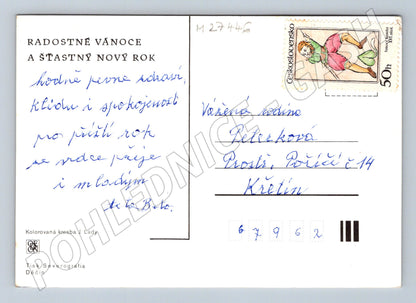 M 27446
RADOSTNÉ VÁNOCE
A ŠŤASTNÝ NOVÝ ROK
hodně pevné zdraví,
klidu i spokojenosti
pro příští rok
ze srdce přeje
i mladým
teta
Kolorovaná kresba J. Lady
Tisk Severografia
Děčín
Československo
50h
Vážená rodina
Peterková
Prostř. Poříčí č 14
Křetín
67962
POHLEDNICE